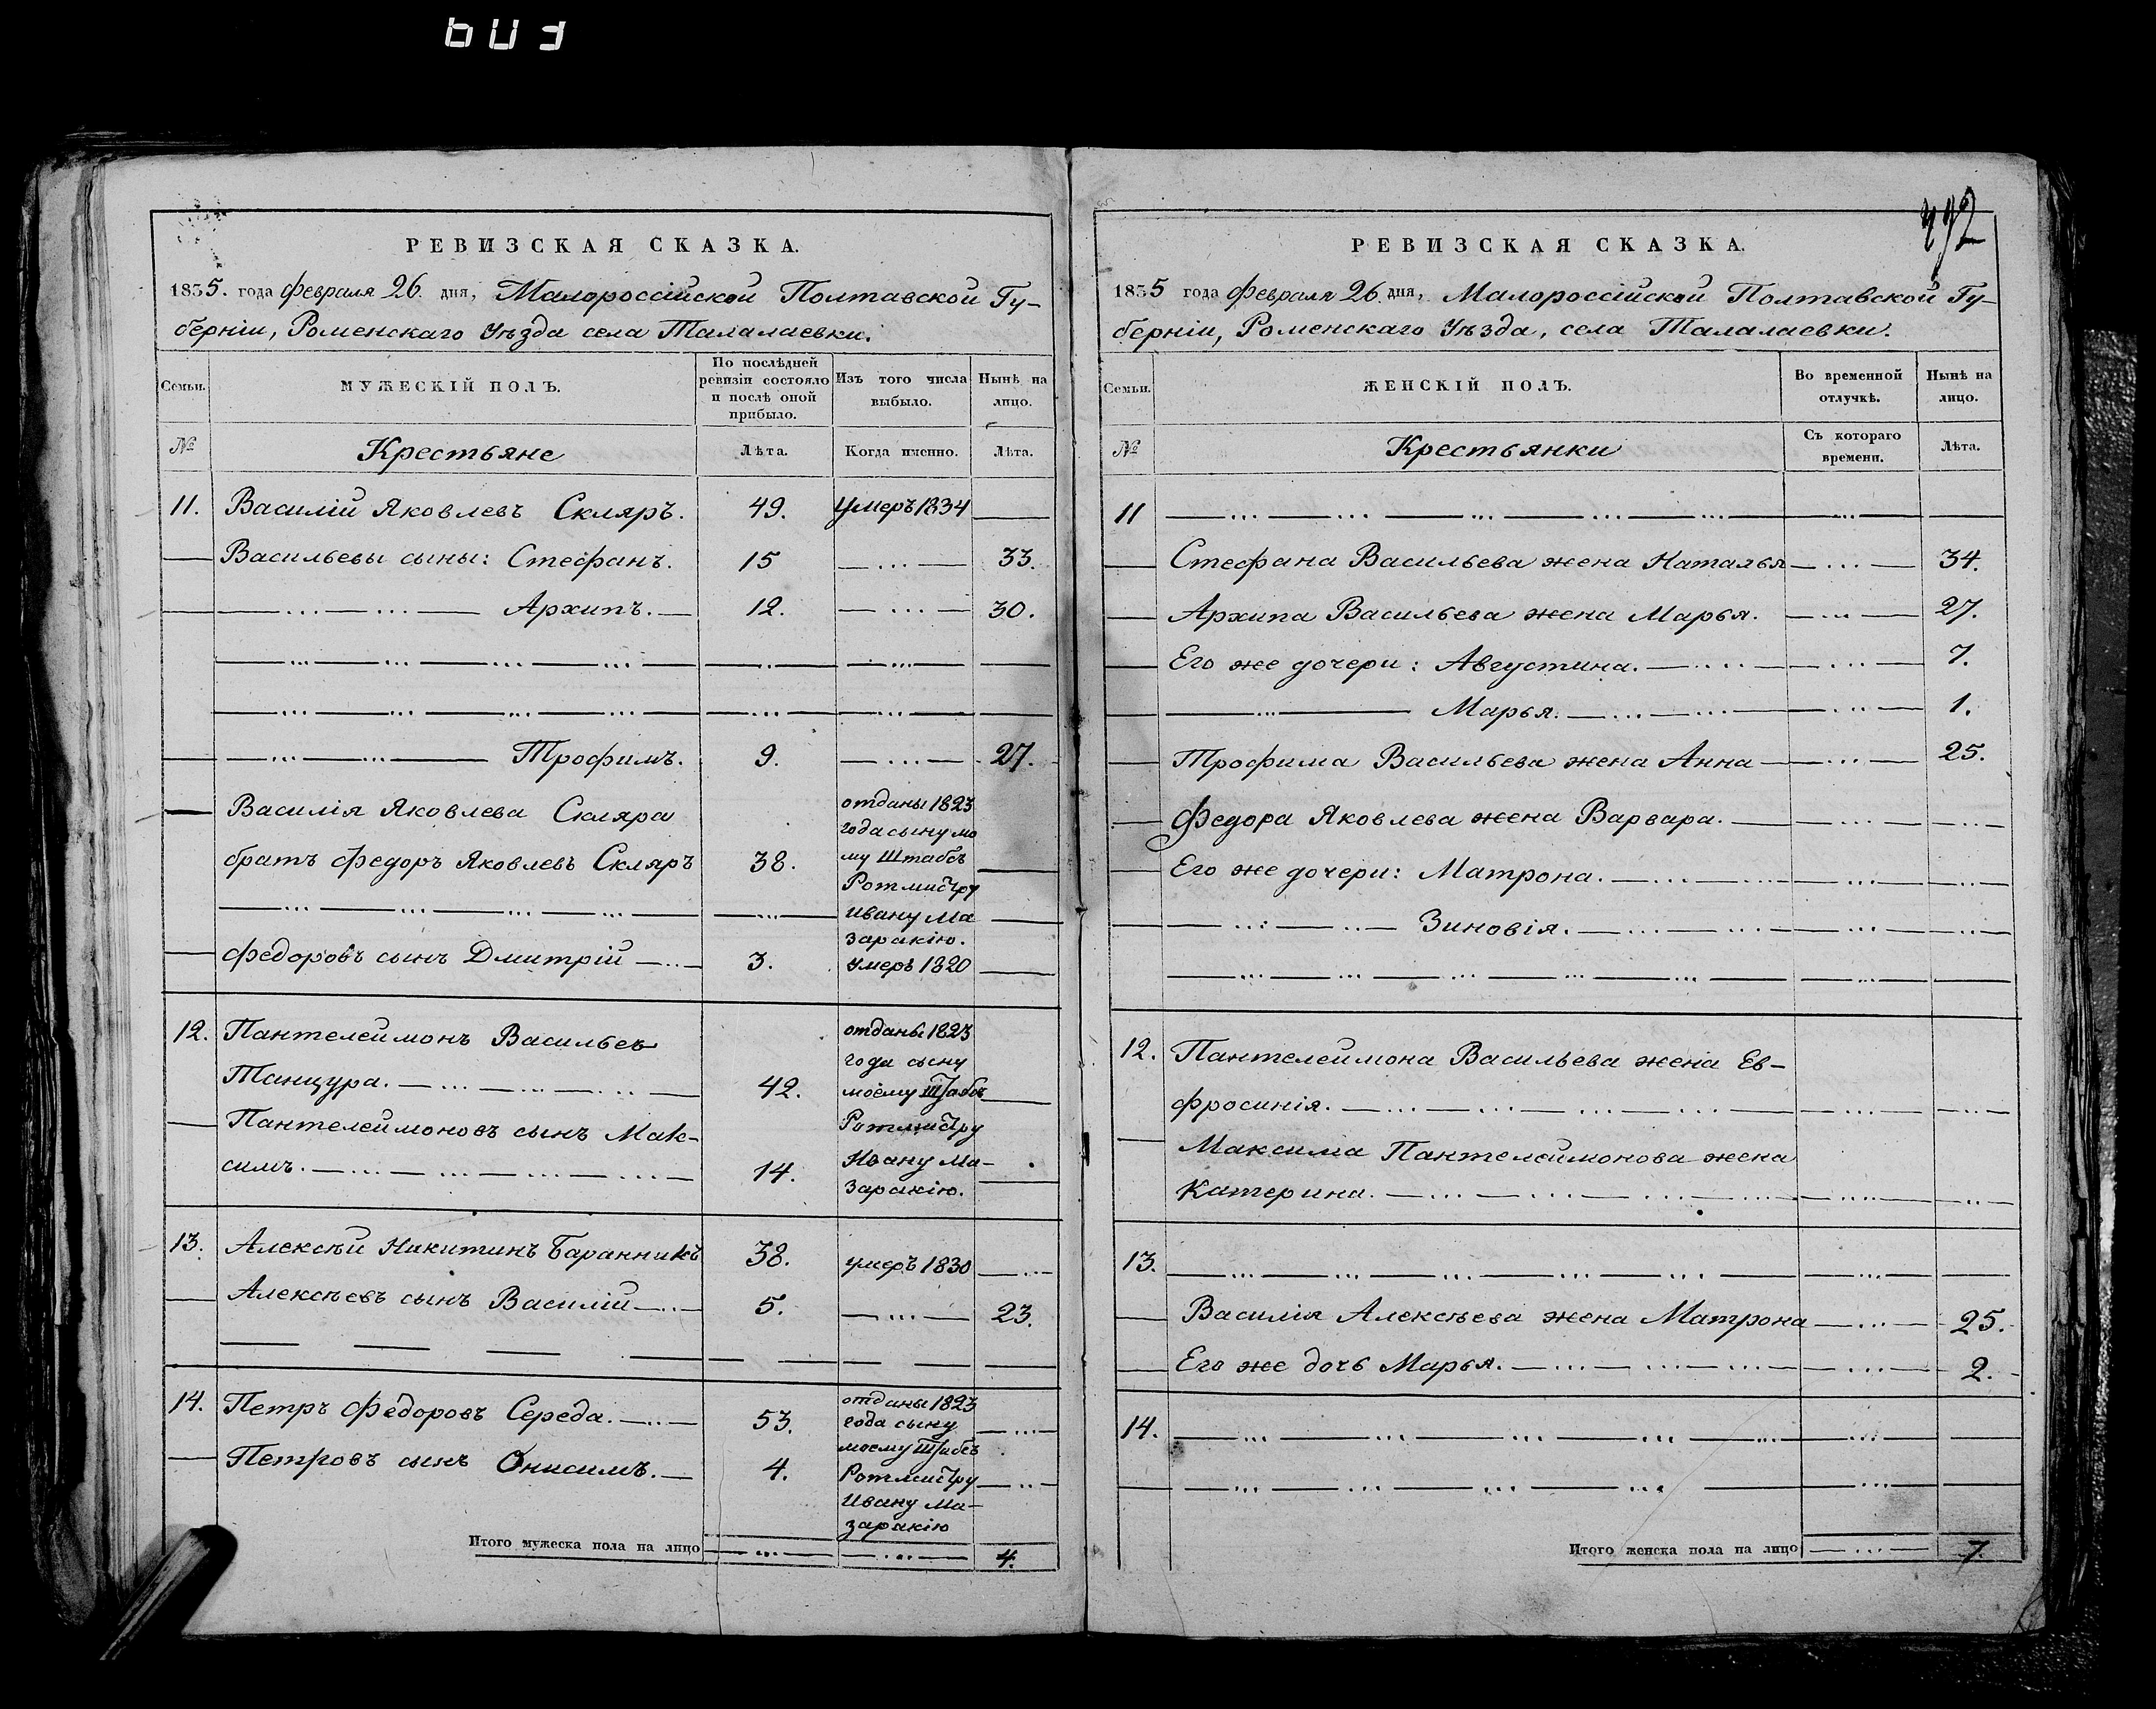 603
РЕВИЗСКАЯ СКАЗКА.
1835. года Февраля 26. дня, Малороссійской Полтавской Гу-
берніи, Роменскаго Уѣзда села Талалаевки.
Семьи.
МУЖЕСКІЙ ПОЛЪ.
По послѣдней
ревизіи состояло
и послѣ оной
прибыло.
Изъ того числа
выбыло.
Нынѣ на
лицо.
№ Крестьяне Лѣта. Когда именно. Лѣта.
11. Василій Яковлевъ Скляръ. 49. Умеръ 1834
Васильевы сыны: Стефанъ. 15 33.
Архипъ. 12. 30.
Трофимъ. 9. 27.
Василія Яковлева Скляра
братъ Федоръ Яковлевъ Скляръ 38.
отданы 1823
года сыну мо
му Штабсъ
Ротмистру
Ивану Ма
заракію.
Федоровъ сынъ Дмитрій 3. Умеръ 1820
12. Пантелеймонъ Васильевъ
Танцура. 42.
Пантелеймоновъ сынъ Мак-
симъ. 14.
отданы 1823
года сыну
моему Штабсъ
Ротмистру
Ивану Ма-
заракію.
13. Алексѣй Никитинъ Баранникъ 38. умеръ 1830
Алексѣевъ сынъ Василій 5. 23.
14. Петръ Федоровъ Середа. 53.
Петровъ сынъ Онисимъ. 4.
отданы 1823
года сыну
моему Штабсъ
Ротмистру
Ивану Ма-
заракію
Итого мужеска пола на лицо 4.
492
РЕВИЗСКАЯ СКАЗКА.
1835 года Февраля 26. дня, Малороссійской Полтавской Гу-
берніи, Роменскаго Уѣзда, села Талалаевки.
Семьи.
ЖЕНСКІЙ ПОЛЪ.
Во временной
отлучкѣ.
Нынѣ на
лицо.
№ Крестьянки
Съ котораго
времени.
Лѣта.
11
Стефана Васильева жена Наталья 34.
Архипа Васильева жена Марья. 27.
Его же дочери: Августина. 7.
Марья. 1.
Трофима Васильева жена Анна 25.
Федора Яковлева жена Варвара.
Его же дочери: Матрона.
Зиновія.
12. Пантелеймона Васильева жена Ев-
фросинія.
Максима Пантелеймонова жена
Катерина.
13.
Василія Алексѣева жена Матрона 25.
Его же дочь Марья. 2.
14.
Итого женска пола на лицо 7.